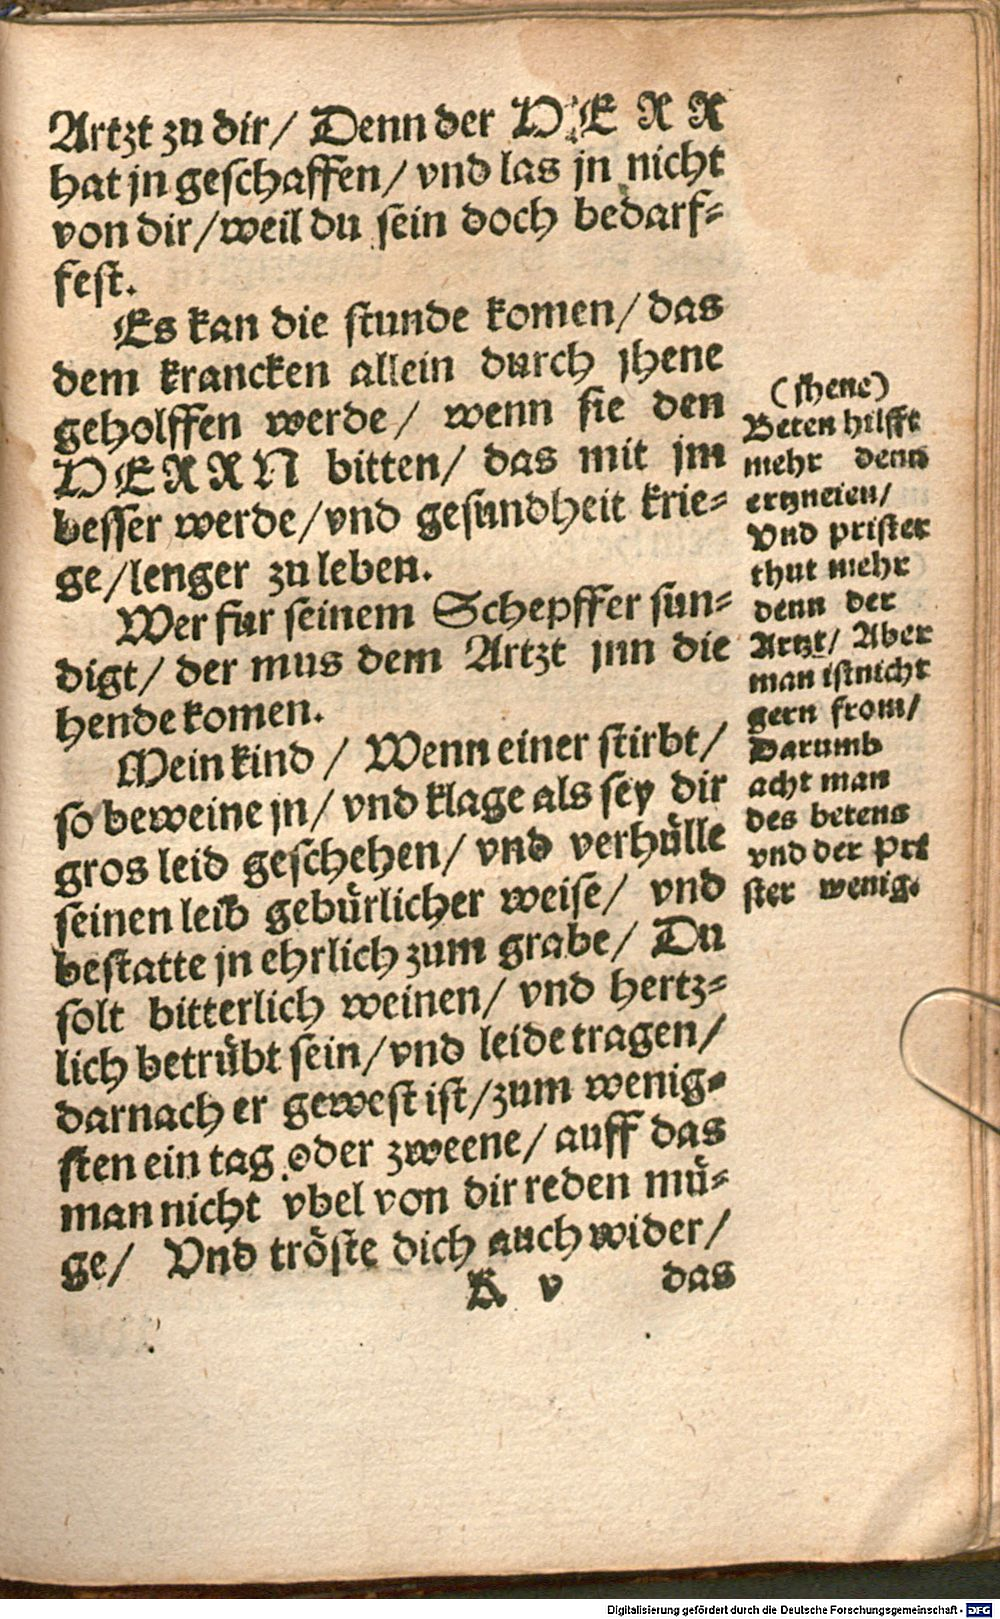 Artzt zu dir/ Denn der HERR
hat jn geschaffen/ vnd las jn nicht
von dir/ weil du sein doch bedarf-
fest.
Es kan die stunde komen/ das
dem krancken allein durch jhene
geholffen werde/ wenn sie den
HERRN bitten/ das mit jm
besser werde/ vnd gesundheit krie-
ge/ lenger zu leben.
Wer fur seinem Schepffer sun-
digt/ der mus dem Artzt jnn die
hende komen.
Mein kind / Wenn einer stirbt/
so beweine jn/ vnd klage als sey dir
gros leid geschehen/ vnd verhülle
seinen leib gebürlicher weise/ vnd
bestatte jn ehrlich zum grabe/ Du
solt bitterlich weinen/ vnd hertz-
lich betrübt sein/ vnd leide tragen/
darnach er gewest ist/ zum wenig-
sten ein tag oder zweene/ auff das
man nicht vbel von dir reden mü-
ge/ Vnd tröste dich auch wider/
K v das
(jhene)
Beten hilfft
mehr denn
ertzneien/
Vnd prister
thut mehr
denn der
Artzt/ Aber
man ist nicht
gern from/
Darumb
acht man
des betens
vnd der pri
ster wenig.
Digitalisierung gefördert durch die Deutsche Forschungsgemeinschaft - DFG